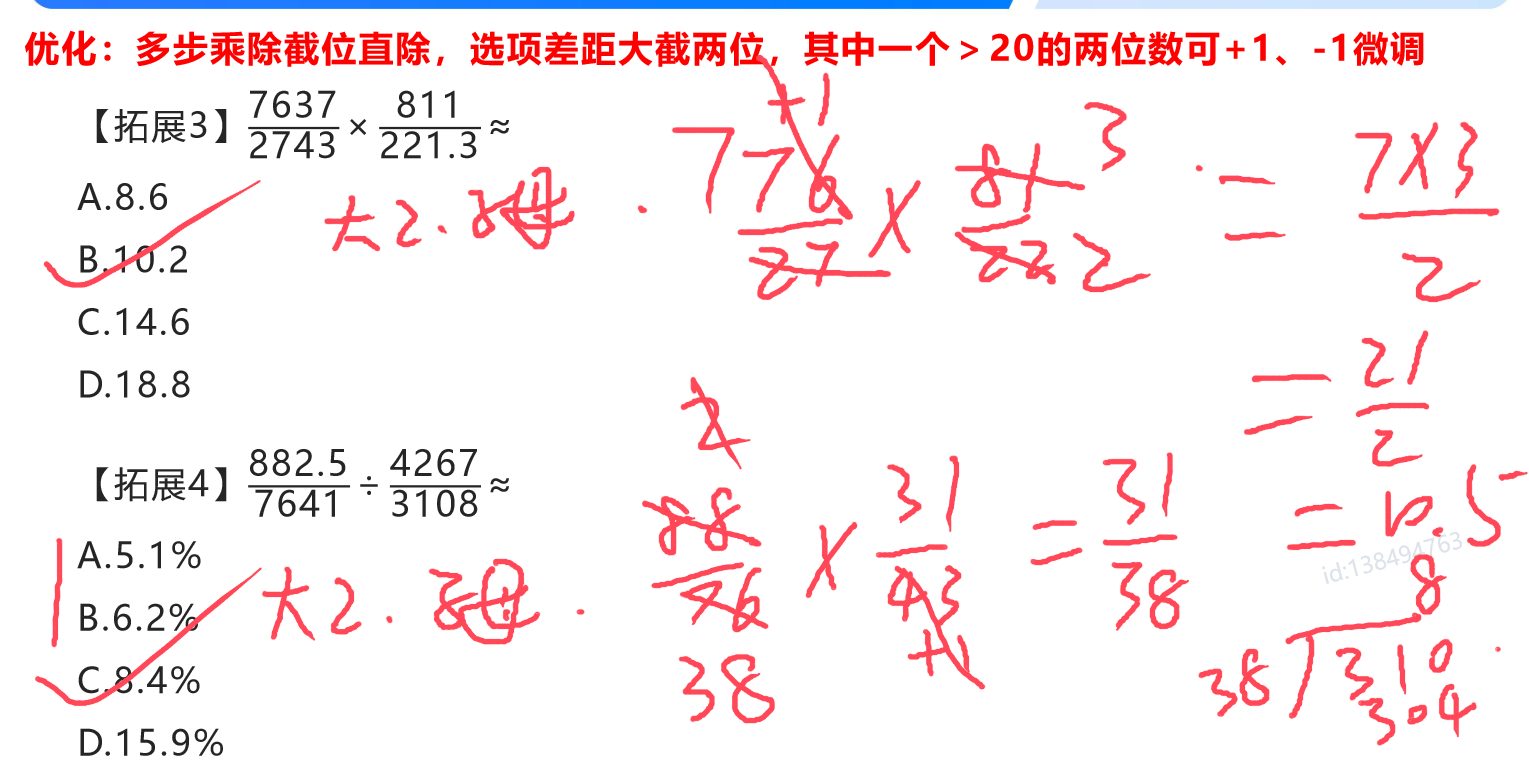 优化：多步乘除截位直除，选项差距大截两位，其中一个＞20的两位数可+1、-1微调
【拓展3】7637/2743 × 811/221.3 ≈
A.8.6
B.10.2
C.14.6
D.18.8
大2.
+1
7 76/27 × 81/22 3 2 = 7×3/2
= 21/2
= 10.5
【拓展4】882.5/7641 ÷ 4267/3108 ≈
A.5.1%
B.6.2%
C.8.4%
D.15.9%
大2.
2
88/76 × 31/43 = 31/38
38
+1
8
38 310
304
id:138494763